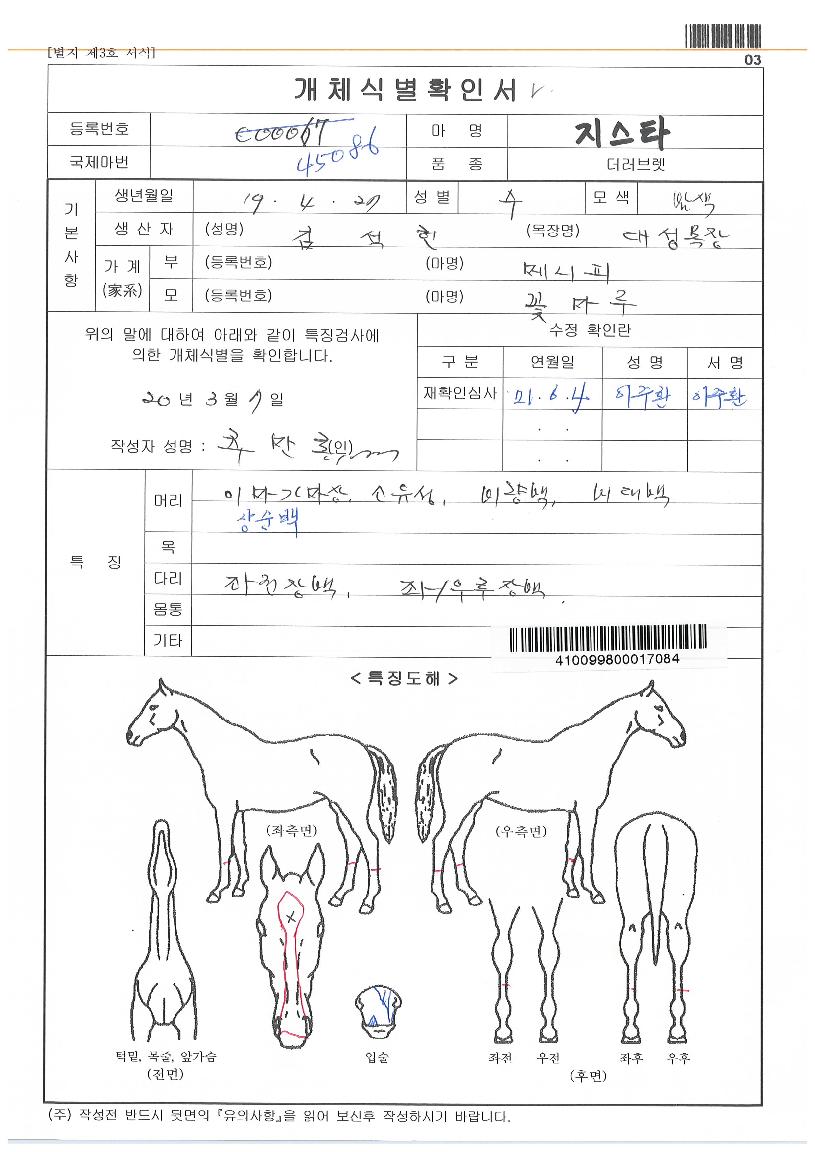 [별지 제3호 서식]
03
개체식별확인서
등록번호 E00067 마 명 지스타
국제마번 45086 품 종 더러브렛
기본사항
생년월일 19 . 4 . 27 성 별 수 모 색
생 산 자 (성명) 김 석 (목장명) 대성목장
가 계 (家系) 부 (등록번호) (마명) 메니피
모 (등록번호) (마명) 꽃 마루
위의 말에 대하여 아래와 같이 특징검사에
의한 개체식별을 확인합니다.
20 년 3 월 7 일
작성자 성명 : (인)
수정 확인란
구 분 연월일 성 명 서 명
재확인심사 21 . 6 . 4 이주환 이주환
. .
. .
특 징
머리 소유성, 비량백, 비대백
상순백
목
다리 좌전장백, 좌/우후장백
몸통
기타
410099800017084
< 특징도해 >
(좌측면) (우측면)
턱밑, 목줄, 앞가슴 (전면)
입술
좌전 우전 좌후 우후
(후면)
(주) 작성전 반드시 뒷면의 『유의사항』을 읽어 보신후 작성하시기 바랍니다.